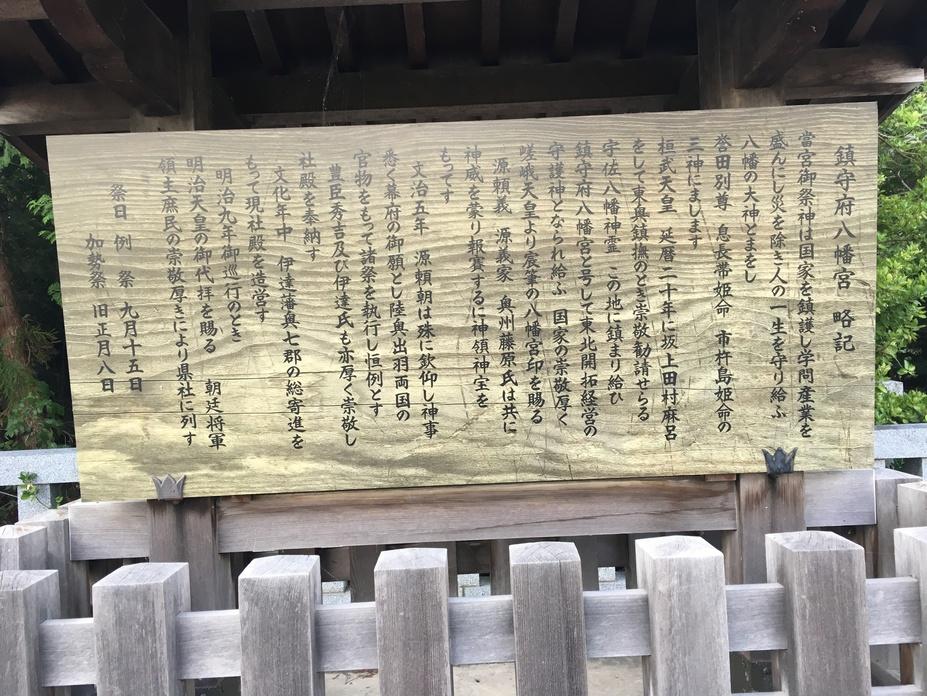 鎮守府八幡宮 略記
當宮御祭神は国家を鎮護し学問産業を
盛んにし災を除き人の一生を守り給ふ
八幡の大神とまをし
誉田別尊 息長帯姫命 市杵島姫命の
三神にまします
桓武天皇 延暦二十年に坂上田村麻呂
をして東奥鎮撫のとき崇敬勧請せらる
宇佐八幡神霊 この地に鎮まり給ひ
鎮守府八幡宮と号して東北開拓経営の
守護神となられ給ふ 国家の崇敬厚く
嵯峨天皇より宸筆の八幡宮印を賜る
源頼義 源義家 奥州藤原氏は共に
神威を蒙り報賽するに神領神宝を
もってす
文治五年 源頼朝は殊に欽仰し神事
悉く幕府の御願とし陸奥出羽両国の
官物をもって諸祭を執行し恒例とす
豊臣秀吉及び伊達氏も亦厚く崇敬し
社殿を奉納す
文化年中 伊達藩奥七郡の総寄進を
もって現社殿を造営す
明治九年御巡行のとき
明治天皇の御代拝を賜る 朝廷将軍
領主庶民の崇敬厚きにより県社に列す
祭日 例祭 九月十五日
加勢祭 旧正月八日